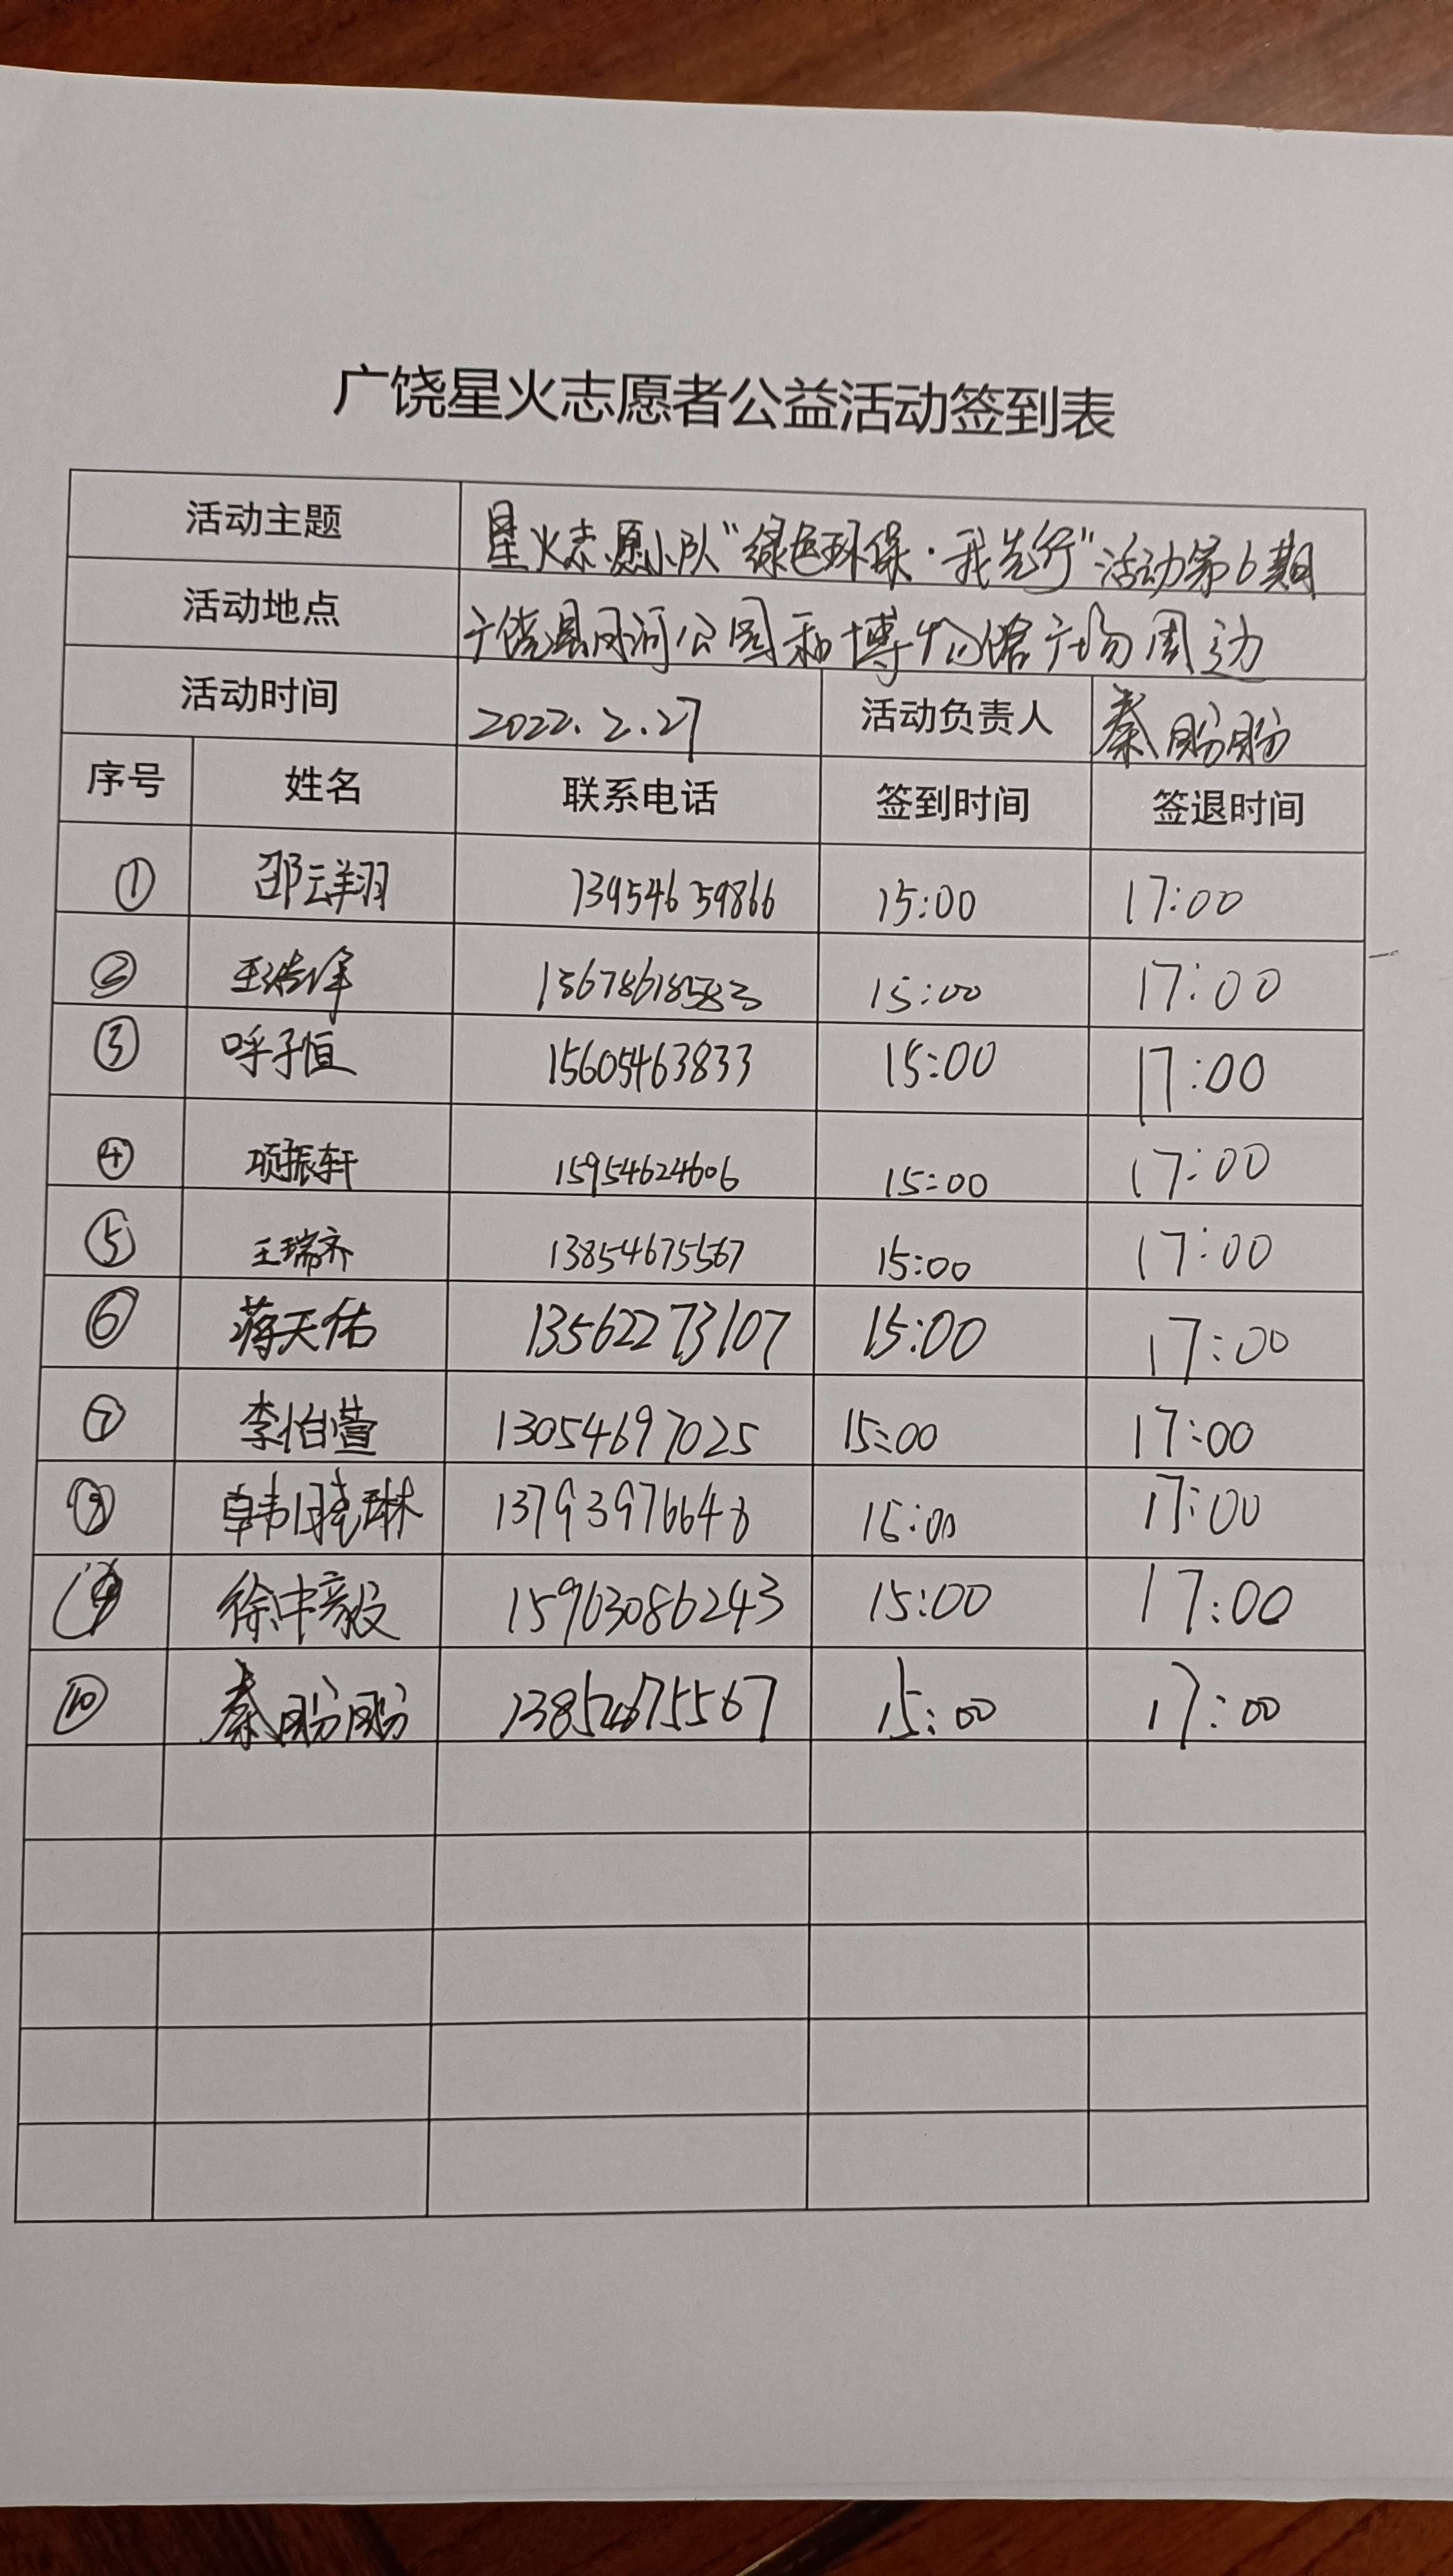 广饶星火志愿者公益活动签到表
活动主题 星火志愿小队“绿色环保·我先行”活动第6期
活动地点 广饶县月河公园和博物馆广场周边
活动时间 2022.2.27 活动负责人 秦盼盼
序号 姓名 联系电话 签到时间 签退时间
① 邵云翔 13954659866 15:00 17:00
② 15:00 17:00
③ 呼子恒 15605463833 15:00 17:00
④ 项振轩 15954624606 15:00 17:00
⑤ 王瑞齐 13854675567 15:00 17:00
⑥ 蒋天佑 13562273107 15:00 17:00
⑦ 李怡萱 13054697025 15:00 17:00
⑧ 韩晓琳 15:00 17:00
⑨ 徐沖毅 15963086243 15:00 17:00
⑩ 秦盼盼 13854675567 15:00 17:00